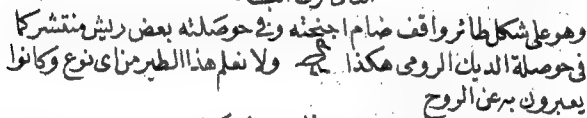 وهو على شكل طائر واقف ضام اجنحته وفى حوصلته بعض ريش منتشر كما
فى حوصلة الديك الرومى هكذا ولا نعلم هذا الطير من اى نوع وكانوا
يعبرون به عن الروح